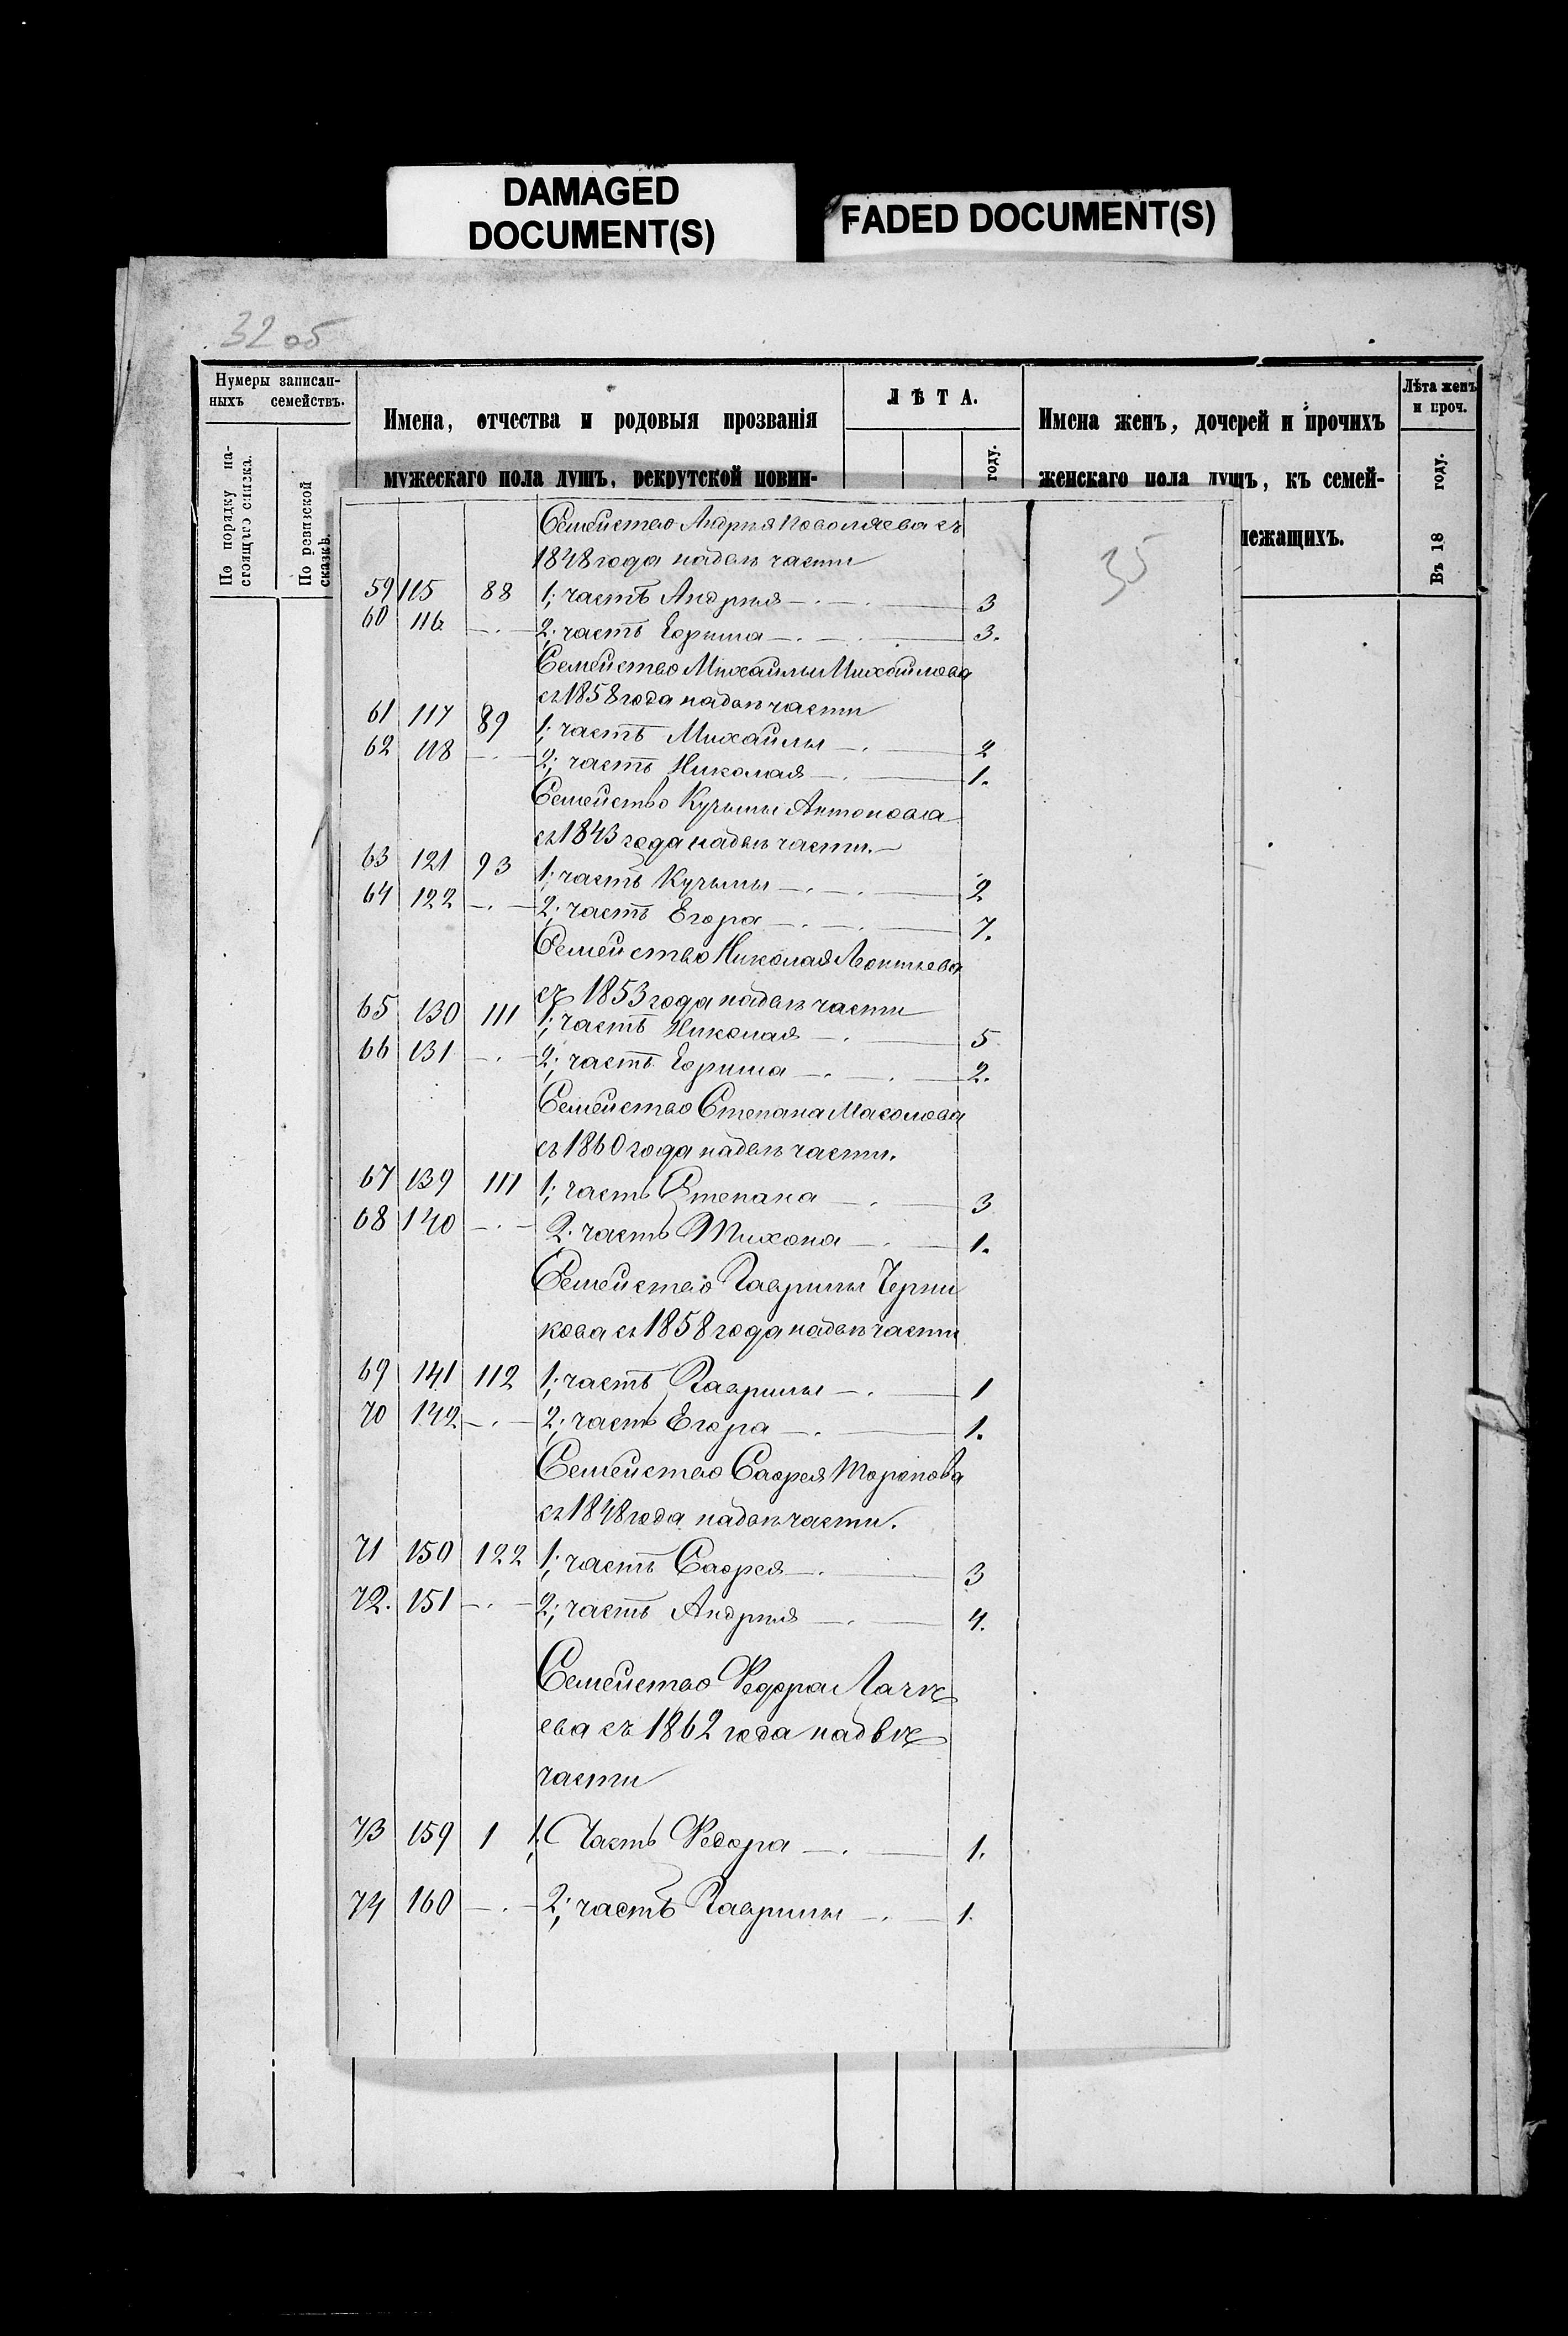 DAMAGED
DOCUMENT(S)
FADED DOCUMENT(S)
32 об
Нумеры записан-
ныхъ семействъ.
По порядку на-
стоящаго списка.
По ревизской
сказкѣ.
Имена, отчества и родовыя прозванія
мужескаго пола душъ, рекрутской повин-
ЛѢТА.
году.
Имена женъ, дочерей и прочихъ
женскаго пола душъ, къ семей-
лежащихъ.
Лѣта женъ
и проч.
Въ 18 году.
35
Семейство Андрея съ
1848 года на двѣ части
59 115 88 1; часть Андрея 3
60 116 2; часть Ефрема 3.
Семейство Михайлы Михайлова
съ 1858 года на двѣ части
61 117 89 1; часть Михайлы 2
62 118 2; часть Николая 1.
Семейство Кузьмы Антонова
съ 1843 года на двѣ части.
63 121 93 1; часть Кузьмы 2
64 122 2; часть Егора 7.
Семейство Николая Леонтьева
съ 1853 года на двѣ части
65 130 111 1; часть Николая 5
66 131 2; часть Ефрема 2.
Семейство Степана Масолова
съ 1860 года на двѣ части.
67 139 111 1; часть Степана 3
68 140 2. часть Тихона 1.
Семейство Гаврилы Черни
кова съ 1858 года на двѣ части
69 141 112 1; часть Гаврилы 1
70 142 2; часть Егора 1.
Семейство Сафрея Торопова
съ 1848 года на двѣ части.
71 150 122 1; часть Сафрея 3
72. 151 2; часть Андрея 4.
Семейство Федора
ева съ 1862 года на двѣ
части
73 159 1 1; Часть Федора 1.
74 160 2; часть Гаврилы 1.